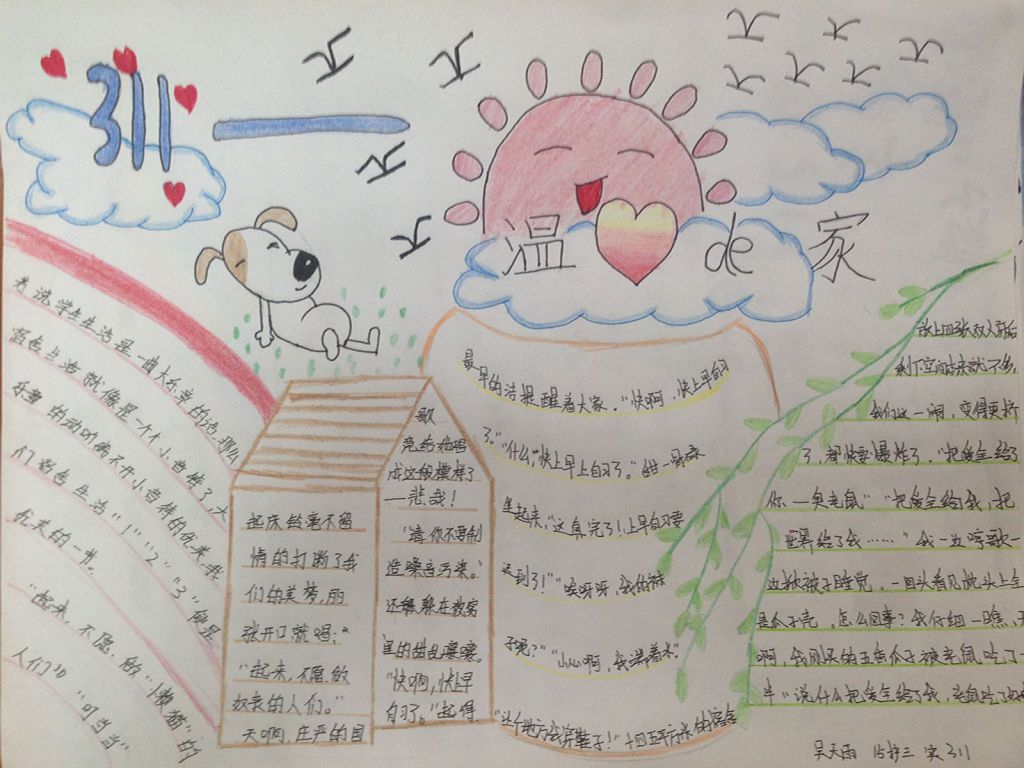 311
温 de 家
若说学生生活是一曲大乐章的话,那么
宿舍生活就像是一个小音符了,大
乐章的动听离不开小音符的优美,我
们宿舍生活"1""2""3"便是
优美的一节。
"起来,不愿做"懒猫"的
人们""叮当当"
起床铃毫不留
情的打断了我
们的美梦,丽
张开口就唱:"
"起来,不愿做
奴隶的人们。"
天啊,庄严的国
歌
竟给她唱
成这般模样了
——悲哉!
"请你不要制
造噪音污染。"
还躲在被窝
里的甜虫嚷嚷。
"快啊,快上早
自习了。"起得
最早的洁提醒着大家。"快啊,快上早自习
了。""什么,快上早上自习了。"甜一骨碌
坐起来,"这真完了!上早自习要
迟到了!""哎呀呀,我的袜
子呢?""小心啊,我端着水"
"这个地方我穿鞋子!"十四五平方米的宿舍
放上四张双人床后
剩下空间本来就不多,
我们这一闹,变得更挤
了,都快要爆炸了,"把宿舍给了
你,一只老鼠""把宿舍给我,把
世界给了我……"我一边哼歌一
边掀被子睡觉,一回头看见枕头上全
是瓜子壳,怎么回事?我仔细一瞧,天
啊,我刚买的五香瓜子被老鼠吃了一
半"说什么把宿舍给了我,老鼠吃了
吴天雨 15护三 实311